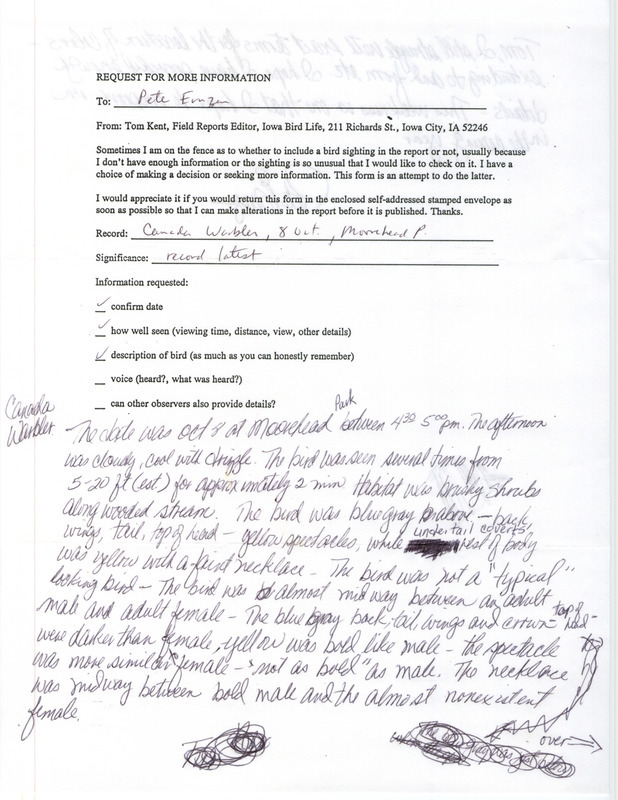 REQUEST FOR MORE INFORMATION
To: Pete
From: Tom Kent, Field Reports Editor, Iowa Bird Life, 211 Richards St., Iowa City, IA 52246
Sometimes I am on the fence as to whether to include a bird sighting in the report or not, usually because
I don't have enough information or the sighting is so unusual that I would like to check on it. I have a
choice of making a decision or seeking more information. This form is an attempt to do the latter.
I would appreciate it if you would return this form in the enclosed self-addressed stamped envelope as
soon as possible so that I can make alterations in the report before it is published. Thanks.
Record: Canada Warbler, 8 Oct., Moorehead P.
Significance: record latest
Information requested:
✓ confirm date
✓ how well seen (viewing time, distance, view, other details)
✓ description of bird (as much as you can honestly remember)
_ voice (heard?, what was heard?)
_ can other observers also provide details?
Canada
Warbler
Park
The date was Oct 8 at Moorehead between 4:30 5:00 pm. The afternoon
was cloudy, cool with drizzle. The bird was seen several times from
5-20 ft (est) for approximately 2 min Habitat was brushy shrubs
along wooded stream. The bird was blue gray above, - back,
wings, tail, top of head - yellow spectacles, white undertail coverts, rest of body
was yellow with a faint necklace - The bird was not a "typical"
looking bird - The bird was almost mid way between an adult
male and adult female - The blue gray back, tail, wings and crown - top of head -
were darker than female, yellow was bold like male - the spectacle
was more similar female - "not as bold" as male. The necklace
was midway between bold male and the almost nonexistent
female.
over